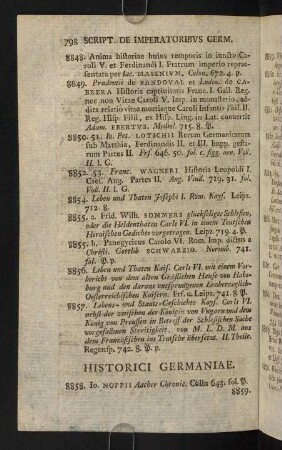 798 SCRIPT. DE IMPERATORIBVS GERM.
8848. Anima historiae huius temporis in iuncto Ca-
roli V. et Ferdinandi I. Fratrum imperio repræ-
sentata per Iac. MASENIVM, Colon. 672. 4. p.
8849. Prudentii de SANDOVAL et Ludou. de CA-
BRERA Historia captiuitatis Franc. I. Gall. Reg.
nec non Vitae Caroli V. Imp. in monasterio, ad-
dita relatio vitae mortisque Caroli Infantis Phil. II.
Reg. Hisp. Filii, ex Hisp. Ling. in Lat. conuertit
Adam. EBERTVS. Mediol. 715. 8. p.
8850. 51. Io. Pet. LOTICHII Rerum Germanicarum
sub Matthia, Ferdinandis II. et III. Impp. gesta-
rum Partes II. Frf. 646. 50. fol. c. figg. aen. Voll.
II. l. G.
8852. 53. Franc. WAGNERI Historia Leopoldi I.
Caes. Aug. Partes II. Aug. Vind. 719. 31. fol.
Voll. II. l. G.
8854. Leben und Thaten Josephi I. Röm. Kays. Leipz.
712. 8.
8855. a. Frid. Wilh. SOMMERS glückseliges Schlesien,
oder die Heldenthaten Carls VI. in einem Teutschen
Heroischen Gedichte vorgetragen. Leipz. 719. 4. p.
8855. b. Panegyricus Carolo VI. Rom. Imp. dictus a
Christi. Gottlib SCHWARZIO. Norimb. 741.
fol. p. p.
8856. Leben und Thaten Kays. Carls VI. mit einem Vor-
bericht von dem alten Gräflichen Hause von Habs-
burg und den daraus entsprungenen Erzherzoglich-
Oesterreichischen Kaisern. Frf. u. Leipz. 741. 8. p.
8857. Lebens- und Staats-Geschichte Kays. Carls VI.
nebst der zwischen der Königin von Vngarn und dem
König von Preussen in Betreff der Schlesischen Sache
vorgefallenen Streitigkeit, von M. L. D. M. aus
dem Französischen ins Teutsche übersetzt. II. Theile.
Regensp. 742. 8. p.
HISTORICI GERMANIAE.
8858. Io. NOPPII Aacher Chronic. Cölln 643. fol. p.
8859.